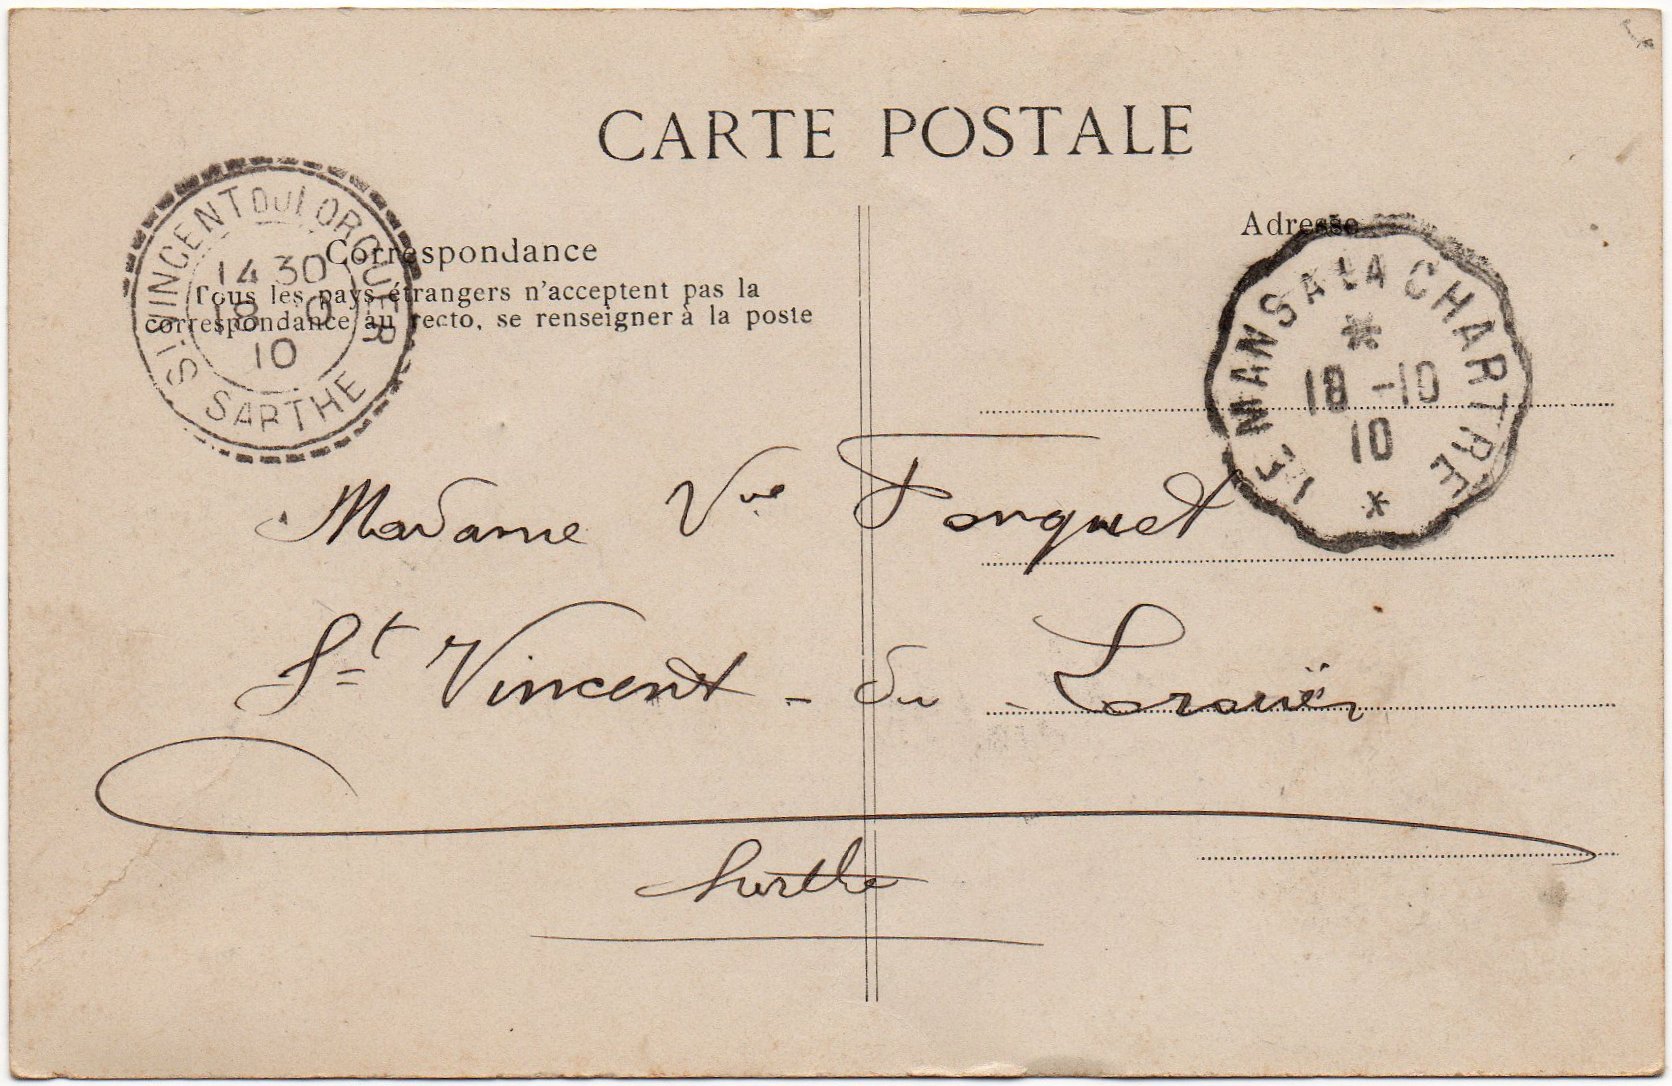 CARTE POSTALE
Correspondance
Tous les pays étrangers n'acceptent pas la
correspondance au recto, se renseigner à la poste
Adresse
ST VINCENT DU LOROUER
SARTHE
14 30
18 10
10
LE MANS A LA CHARTRE
18 -10
10
Madame Vve Forquet
St Vincent - du - Lorouër
Sarthe